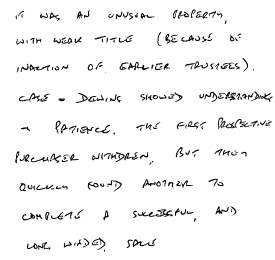 IT WAS AN UNUSUAL PROPERTY,
WITH WEAK TITLE (BECAUSE OF
INACTION OF EARLIER TRUSTEES).
CASE = DEWING SHOWED UNDERSTANDING
+ PATIENCE. THE FIRST PROSPECTIVE
PURCHASER WITHDREW, BUT THEY
QUICKLY FOUND ANOTHER TO
COMPLETE A SUCCESSFUL, AND
LONG WINDED, SALE